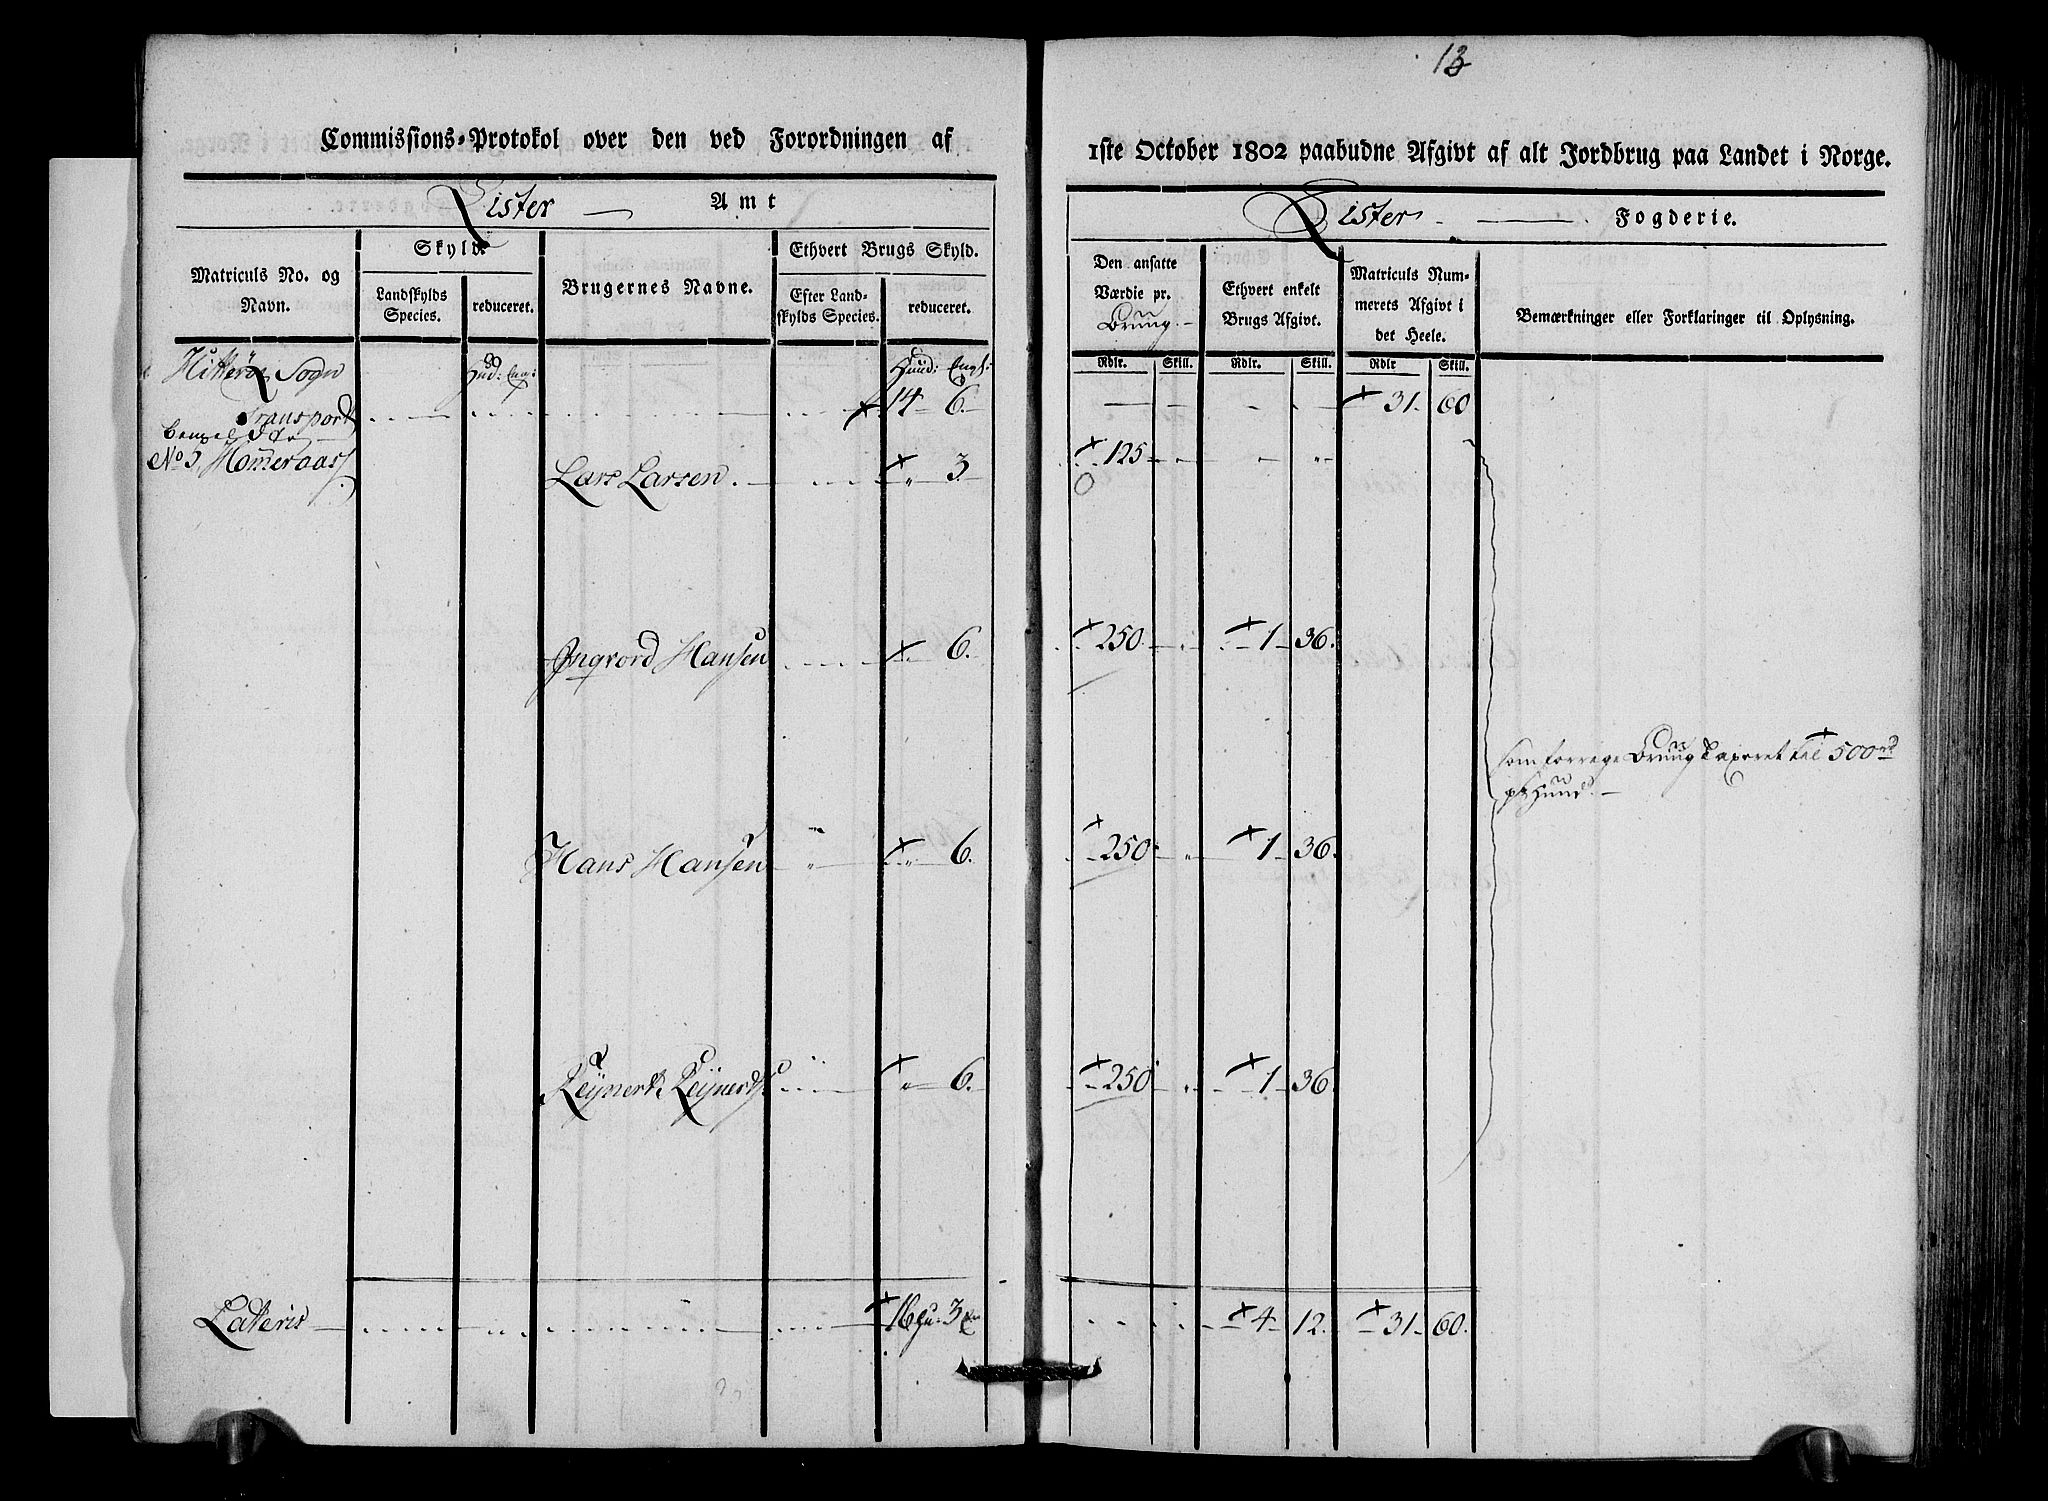 13
Commissions-Protokol over den ved Forordningen af
1ste October 1802 paabudne Afgivt af alt Jordbrug paa Landet i Norge.
Lister — Amt
Lister — Fogderie.
Matriculs No. og Navn.
Skyld.
Landskylds Species.
reduceret.
Brugernes Navne.
Ethvert Brugs Skyld.
Efter Landskylds Species.
reduceret.
Den ansatte Værdie pr. Bruug.
Ethvert enkelt Brugs Afgivt.
Matriculs Nummerets Afgivt i det Heele.
Bemærkninger eller Forklaringer til Oplysning.
Rdlr. Skill. Rdlr. Skill. Rdlr Skill.
Hitterøe Sogn Hud: Eng: Huud: Engl:
Transport 14 6. 31. 60
No 5, Homeraas
Lars Larsen. " 3. 125 "
Ingvord Hansen 6. 250. 1 36.
som forrige Bruug Taxeret til 500 rd
pr Huud.
Hans Hansen " " 6. 250 " 1 36.
Reÿnert Reÿnerts. " 6. 250 " 1 36.
Lateris 16 hu. 3 4 12. 31 60.